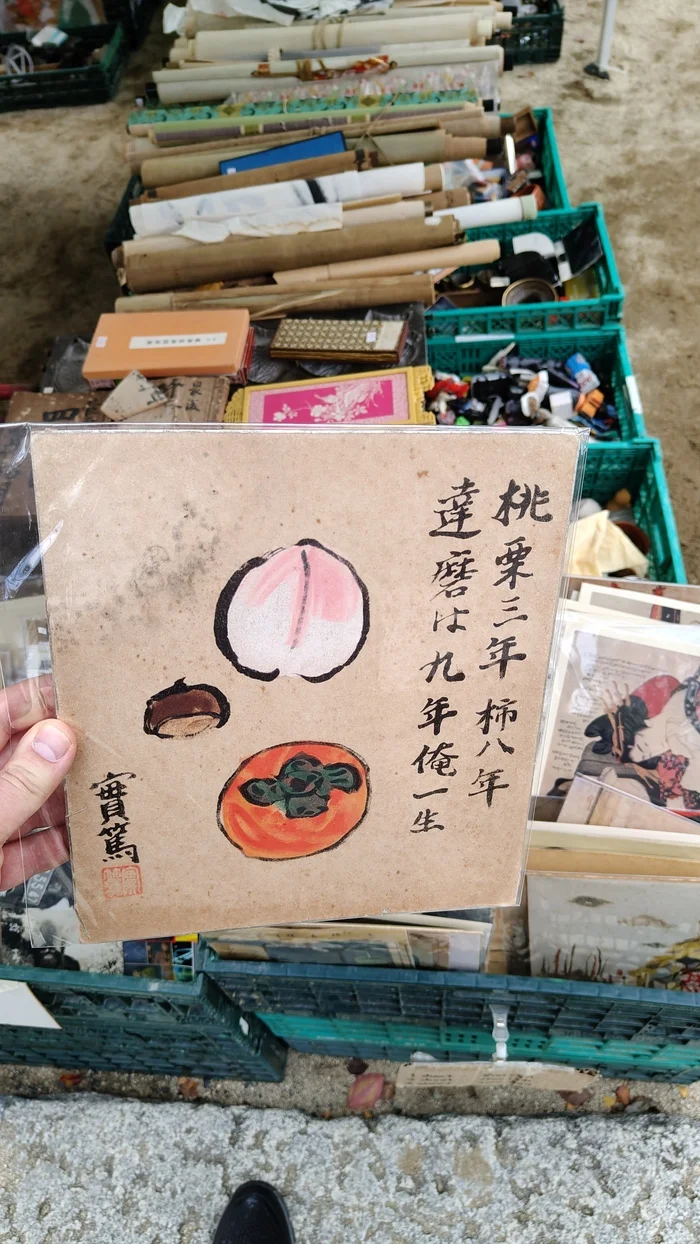 桃栗三年柿八年
達磨は九年俺一生
實篤